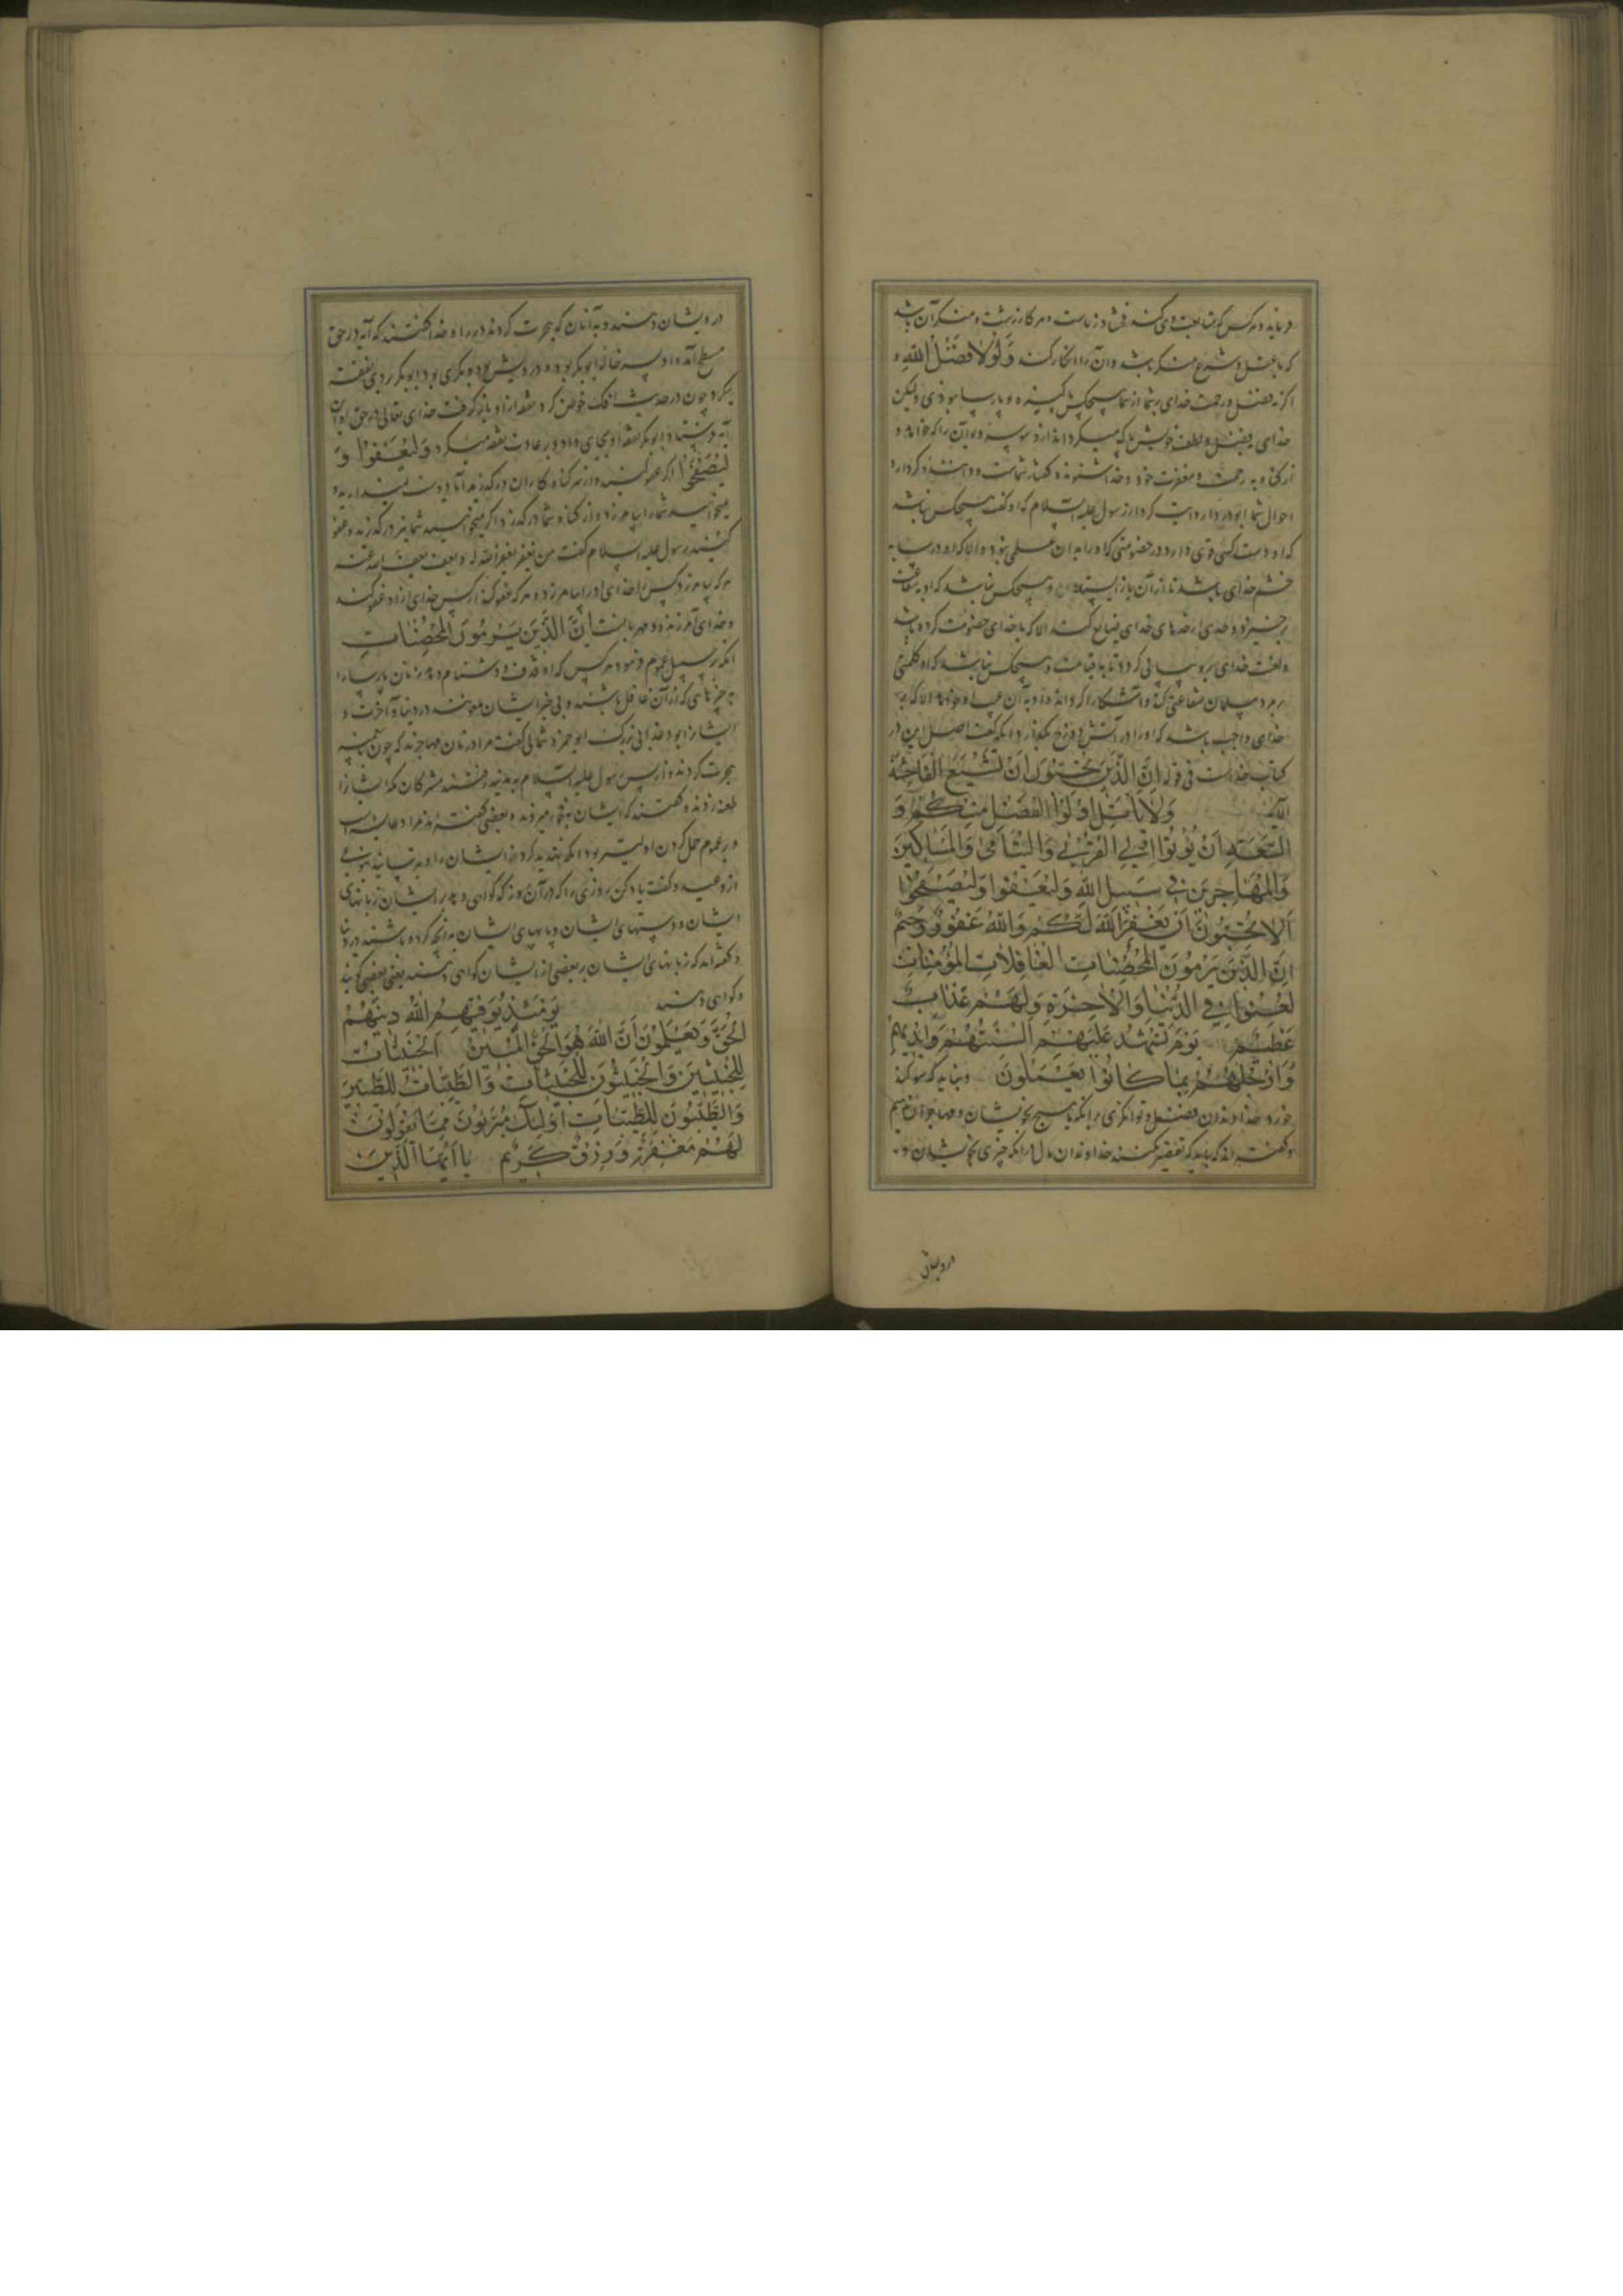 فرماید و هر کس که متابعت وی کند فحشا و زناست و هر کار زشت و منکر آن باشد
که با عقل و شرع منکر باشد و آن را انکار کنند وَلَوْلَا فَضْلُ اللَّهِ و
اگر نه فضل و رحمت خدای بر شما از شما هیچکس پاکیزه و پارسا نبودی و لیکن
خدای بفضل و لطف خویش پاک میگرداند از وسوسه دیو آن را که خواهد و
از گناه به رحمت و مغفرت خود و خدا شنونده گفتار شماست و داننده کردار و
احوال شما ابو دردا روایت کرد از رسول علیه السلام که او گفت هیچکس نباشد
که او دست کسی قوی دارد در خصومتی که او را به آن علمی نبود و الا که او در سایه
خشم خدای باشد تا از آن باز ایستد و هیچکس نباشد که او بشفاعت
برخیزد و حدی از حدهای خدای ضایع کند الا که با خدای خصومت کرده باشد
و لعنت خدای بر وی پیاپی گردد تا به قیامت و هیچکس نباشد که او کلمتی
بر مرد مسلمان کند و آشکارا گرداند و او به آن عیب او خواهد الا که بر
خدای واجب باشد که او را در آتش دوزخ بگدازد آنگه گفت اصل این در
کتاب خداست فی قوله إِنَّ الَّذِينَ يُحِبُّونَ أَنْ تَشِيعَ الْفَاحِشَةُ
الآیه وَلَا يَأْتَلِ أُولُوا الْفَضْلِ مِنْكُمْ وَ
السَّعَةِ أَنْ يُؤْتُوا أُولِي الْقُرْبَى وَالْيَتَامَى وَالْمَسَاكِينَ
وَالْمُهَاجِرِينَ فِي سَبِيلِ اللَّهِ وَلْيَعْفُوا وَلْيَصْفَحُوا
أَلَا تُحِبُّونَ أَنْ يَغْفِرَ اللَّهُ لَكُمْ وَاللَّهُ غَفُورٌ رَحِيمٌ
إِنَّ الَّذِينَ يَرْمُونَ الْمُحْصَنَاتِ الْغَافِلَاتِ الْمُؤْمِنَاتِ
لُعِنُوا فِي الدُّنْيَا وَالْآخِرَةِ وَلَهُمْ عَذَابٌ
عَظِيمٌ يَوْمَ تَشْهَدُ عَلَيْهِمْ أَلْسِنَتُهُمْ وَأَيْدِيهِمْ
وَأَرْجُلُهُمْ بِمَا كَانُوا يَعْمَلُونَ و نباید که سوگند
خورد خداوندان فضل و توانگری برآنکه با هیچ خویشان و مهاجران
و گفته اند که باید که تقصیر نکنند خداوندان مال برآنکه چیزی بخویشان و
درویشان
درویشان دهند و به آنان که هجرت کردند در راه خدا گفتند که آیه در حق
مسطح آمد و او پسر خاله ابوبکر بود و درویش بود و ابوبکر بر وی نفقه
میکرد چون در حدیث افک خوض کرد نفقه از او بازگرفت خدای تعالی در حق او این
آیه فرستاد ابوبکر نفقه او بجای داد و بر عادت نفقه میکرد وَلْيَعْفُوا وَ
لْيَصْفَحُوا اگر عفو کنند و از سر گناه گاران درگذرند آیا دوست میندارید و
میخواهید شما را بیامرزد و از گناه شما درگذرد اگر میخواهید شما نیز درگذرید و عفو
کنید رسول علیه السلام گفت من یغفر یغفر الله له و من یعف یعف الله عنه
هر که بیامرزد کس را خدای او را بیامرزد و هر که عفو کند از کس خدای از او عفو کند
و خدای آمرزنده و مهربانست إِنَّ الَّذِينَ يَرْمُونَ الْمُحْصَنَاتِ
آنگه بر سبیل عموم فرمود هر کس که او قذف و دشنام دهد زنان پارسا را
به چیزهایی که از آن غافل باشند و بی خبر ایشان ملعونند در دنیا و آخرت و
ایشان را بود عذابی بزرگ ابو حمزه ثمالی گفت مراد زنان مهاجرند که چون
هجرت کردند و از پس رسول علیه السلام به مدینه رفتند مشرکان مکه ایشان را
طعنه زدند و گفتند که ایشان به فجور میروند و بعضی گفتند مراد عایشه است
و بر عموم حمل کردن اولیتر بود آنگه تهدید کرد ایشان را و بترسانید بنوعی
از وعید و گفت یاد کن روزی را که در آن روز که گواهی دهد بر ایشان زبانهای
ایشان و دستهای ایشان و پایهای ایشان به آنچه کرده باشند در دنیا
و گفته اند که زبانهای ایشان بر بعضی از ایشان گواهی دهند یعنی بعضی گویند
و گواهی دهند يَوْمَئِذٍ يُوَفِّيهِمُ اللَّهُ دِينَهُمُ
الْحَقَّ وَيَعْلَمُونَ أَنَّ اللَّهَ هُوَ الْحَقُّ الْمُبِينُ الْخَبِيثَاتُ
لِلْخَبِيثِينَ وَالْخَبِيثُونَ لِلْخَبِيثَاتِ وَالطَّيِّبَاتُ لِلطَّيِّبِينَ
وَالطَّيِّبُونَ لِلطَّيِّبَاتِ أُولَئِكَ مُبَرَّءُونَ مِمَّا يَقُولُونَ
لَهُمْ مَغْفِرَةٌ وَرِزْقٌ كَرِيمٌ يَا أَيُّهَا الَّذِينَ